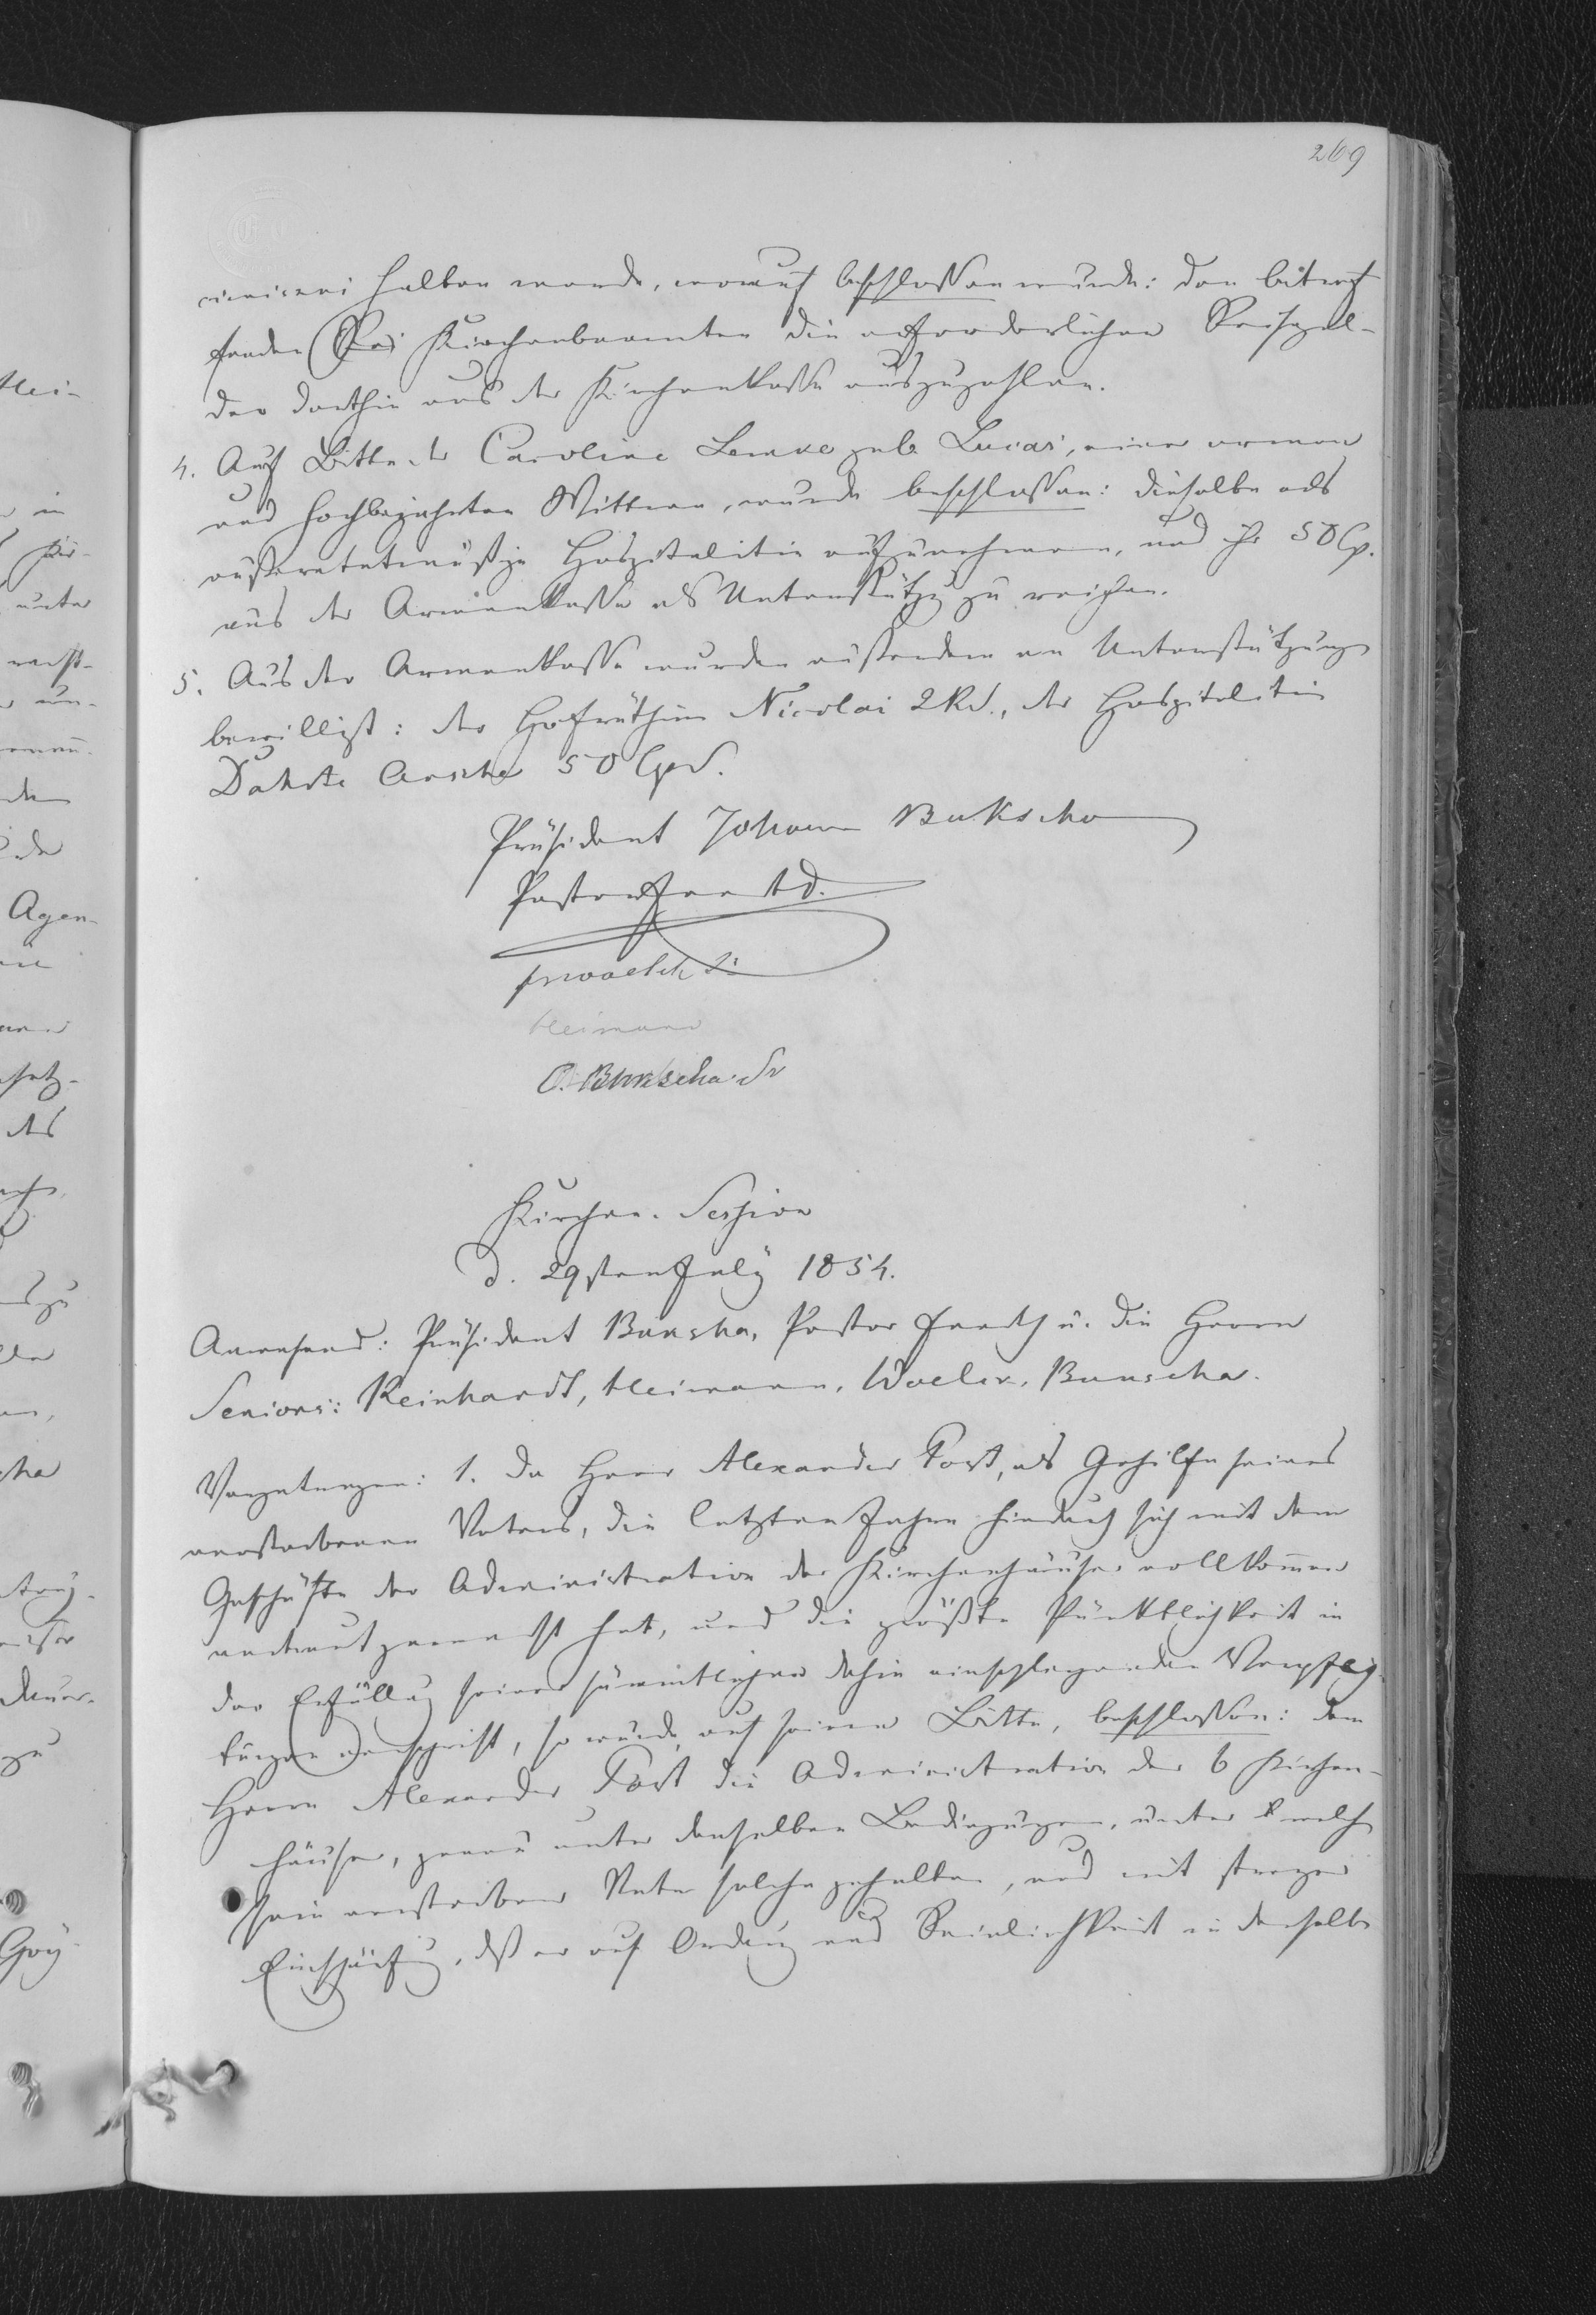 269
halten werde, worauf beschlossen wurde: den betref-
fenden Kirchenbeamten die erforderlichen Reisegel-
der dorthin aus der Kirchenkasse auszuzahlen.
4. Auf Bitte der Caroline Lemke geb. Lucas, einer armen
und hochbejahrten Wittwe, wurde beschlossen: dieselbe als
außeretatmäßige Hospitalitin aufzunehmen, und ihr 50 Cp.
aus der Armenkasse als Unterstützg zu reichen.
5. Aus der Armenkasse wurden außerdem an Unterstützung
bewilligt: der Hofräthin Nicolai 2 Rd., der Hospitalitin
50 Cp S.
Präsident Johann Bukscha
Pastor
Heimann
C. Bunscha Sr
Kirchen-Session
d. 29sten July 1854.
Anwesend: Präsident Pastor u. die Herrn
Seniors: Reinhardt, Heimann, Woelck, Bunscha.
1. Da Herr Alexander Post, als Gehilfe seines
verstorbenen Vaters, die letzten Jahre hindurch sich mit dem
Geschäfte der Administration der Kirchenhäuser vollkommen
vertraut gemacht hat, und die größte Pünktlichkeit in
der Erfüllung seiner sämmtlichen dahin einschlagenden Verpflich-
tungen verspricht, so wurde, auf seine Bitte, beschlossen: dem
Herrn Alexander Post die Administration der 6 Kirchen-
häuser, genau unter denselben Bedingungen, unter welche
sein verstorbener Vater solche gehalten, und mit strenger
Einschärfung, daß er auf Ordnung und Reinlichkeit in denselben